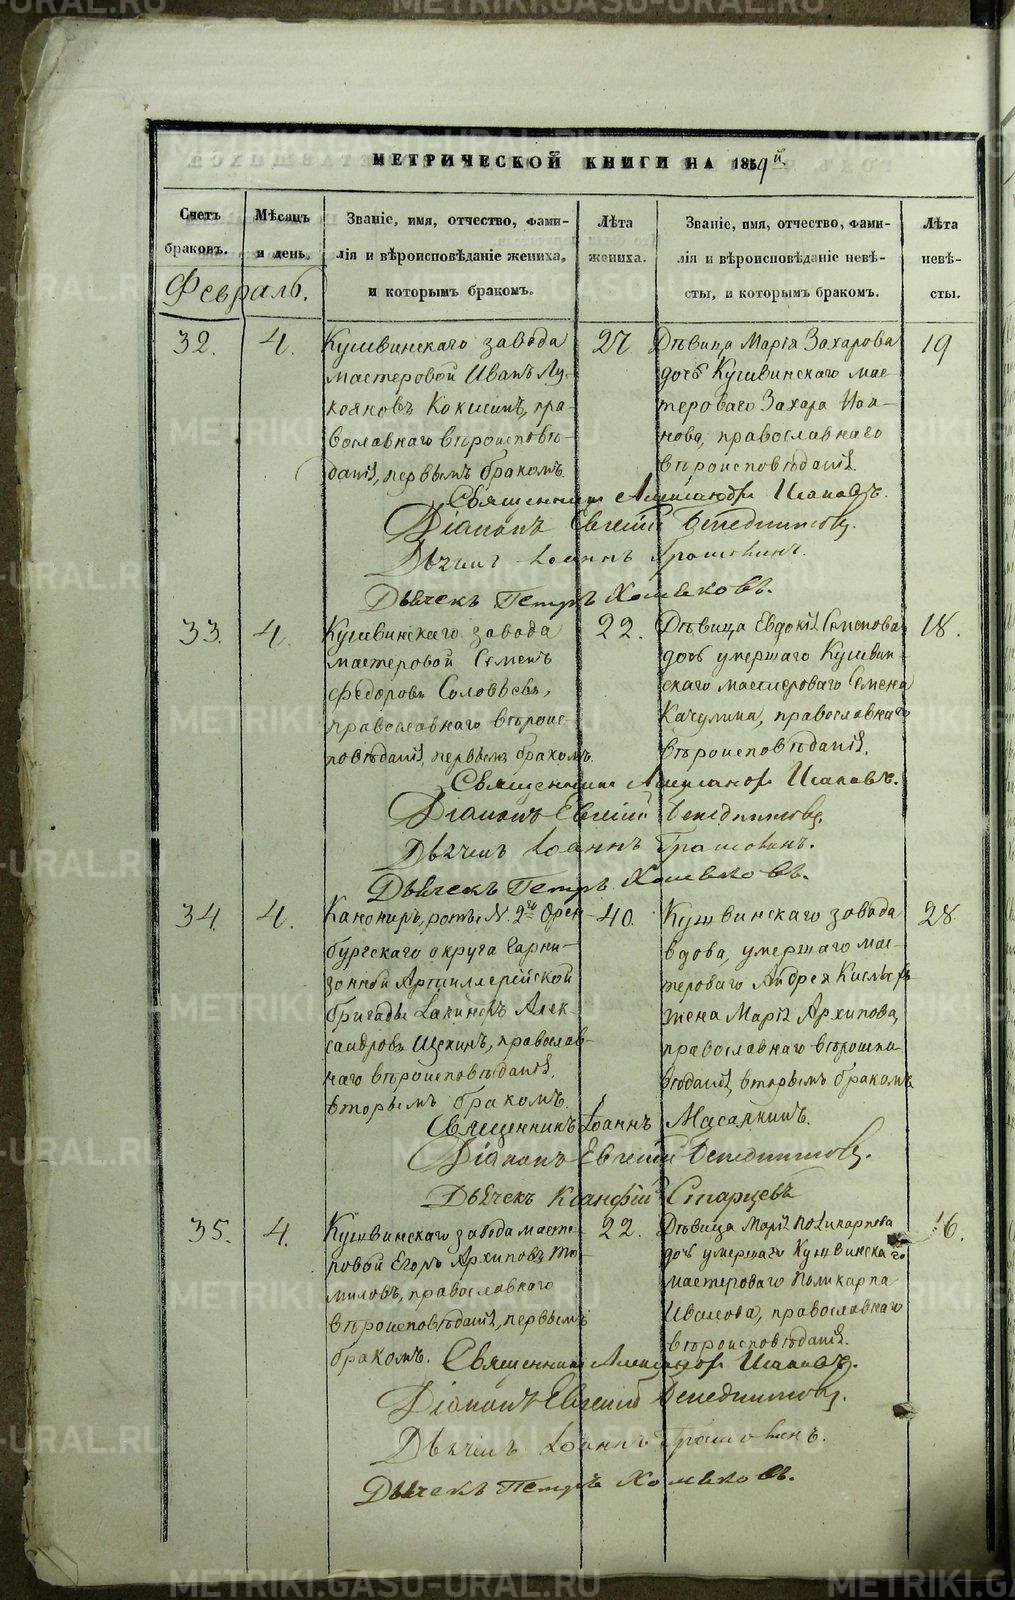 МЕТРИЧЕСКОЙ КНИГИ НА 1859й
Счетъ браковъ.
Мѣсяцъ и день.
Званіе, имя, отчество, фами-
лія и вѣроисповѣданіе жениха,
и которымъ бракомъ.
Лѣта жениха.
Званіе, имя, отчество, фами-
лія и вѣроисповѣданіе невѣ-
сты, и которымъ бракомъ.
Лѣта невѣ-
сты.
Февраль.
32. 4.
Кушвинскаго завода
мастеровой Иванъ Лу-
кояновъ Кокшинъ, пра-
вославнаго вѣроисповѣ-
данія, первымъ бракомъ.
27.
Дѣвица Марія Захарова
дочь Кушвинскаго мас-
тероваго Захара
православнаго
вѣроисповѣданія.
19
Священникъ Александръ
Діаконъ Евгеній
Дьячекъ Іоаннъ
Дьячекъ Петръ Хомяковъ.
33. 4.
Кушвинскаго завода
мастеровой Семенъ
Федоровъ Соловьевъ,
православнаго вѣроис-
повѣданія, первымъ бракомъ.
22.
Дѣвица Евдокія Семенова
дочь умершаго Кушвин-
скаго мастероваго Семена
Качулина, православнаго
вѣроисповѣданія.
18.
Священникъ Александръ
Діаконъ Евгеній
Дьячекъ Іоаннъ
Дьячекъ Петръ Хомяковъ.
34. 4.
Канониръ, роты N. 2й Орен-
бургскаго округа Гарни-
зонной Артиллерійской
бригады Алек-
сандровъ Щекинъ, православ-
наго вѣроисповѣданія,
вторымъ бракомъ.
40.
Кушвинскаго завода
вдова, умершаго мас-
тероваго Андрея
жена Марія Архипова,
православнаго вѣроиспо-
вѣданія, вторымъ бракомъ.
28
Священникъ Іоаннъ Масалкинъ.
Діаконъ Евгеній
Дьячекъ Ксанфій Старцевъ
35. 4.
Кушвинскаго завода масте-
ровой Егоръ Архиповъ То-
миловъ, православнаго
вѣроисповѣданія, первымъ
бракомъ.
22.
Дѣвица Марія Поликарпова
дочь умершаго Кушвинскаго
мастероваго Поликарпа
Иванова, православнаго
вѣроисповѣданія.
16.
Священникъ Александръ
Діаконъ Евгеній
Дьячекъ Іоаннъ
Дьячекъ Петръ Хомяковъ.
METRIKI.GASO-URAL.RU